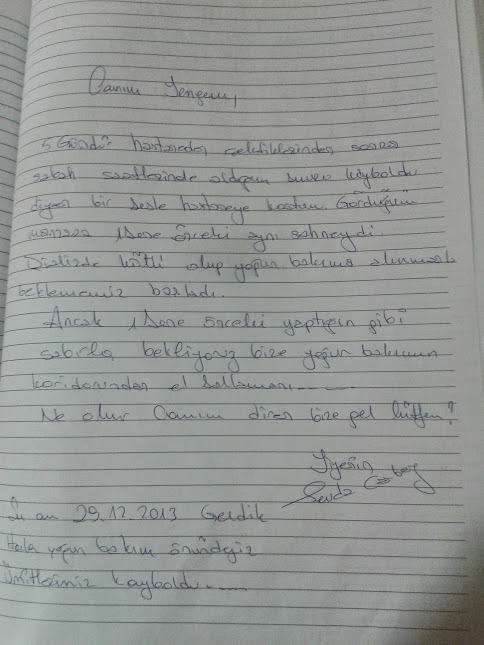 Canım Yengem,
5 Gündür hastaneden çektiklerinden sonra
sabah saatlerinde aldığım şuuru kayboldu
diyen bir sesle hastaneye koştum. Gördüğüm
manzara 1 Sene önceki aynı sahneydi.
Diyalizde kötü olup yoğun bakıma alınmasıyla
beklememiz başladı.
Ancak 1 Sene önceki yaptığın gibi
sabırla bekliyoruz bize yoğun bakımın
koridorundan el sallamanı......
Ne olur Canım diren bize gel lütfen!
Yeğenin
Sevda
Şu an 29.12.2013 Geldik
Hala yoğun bakım önündeyiz
Ümitlerimiz kayboldu......